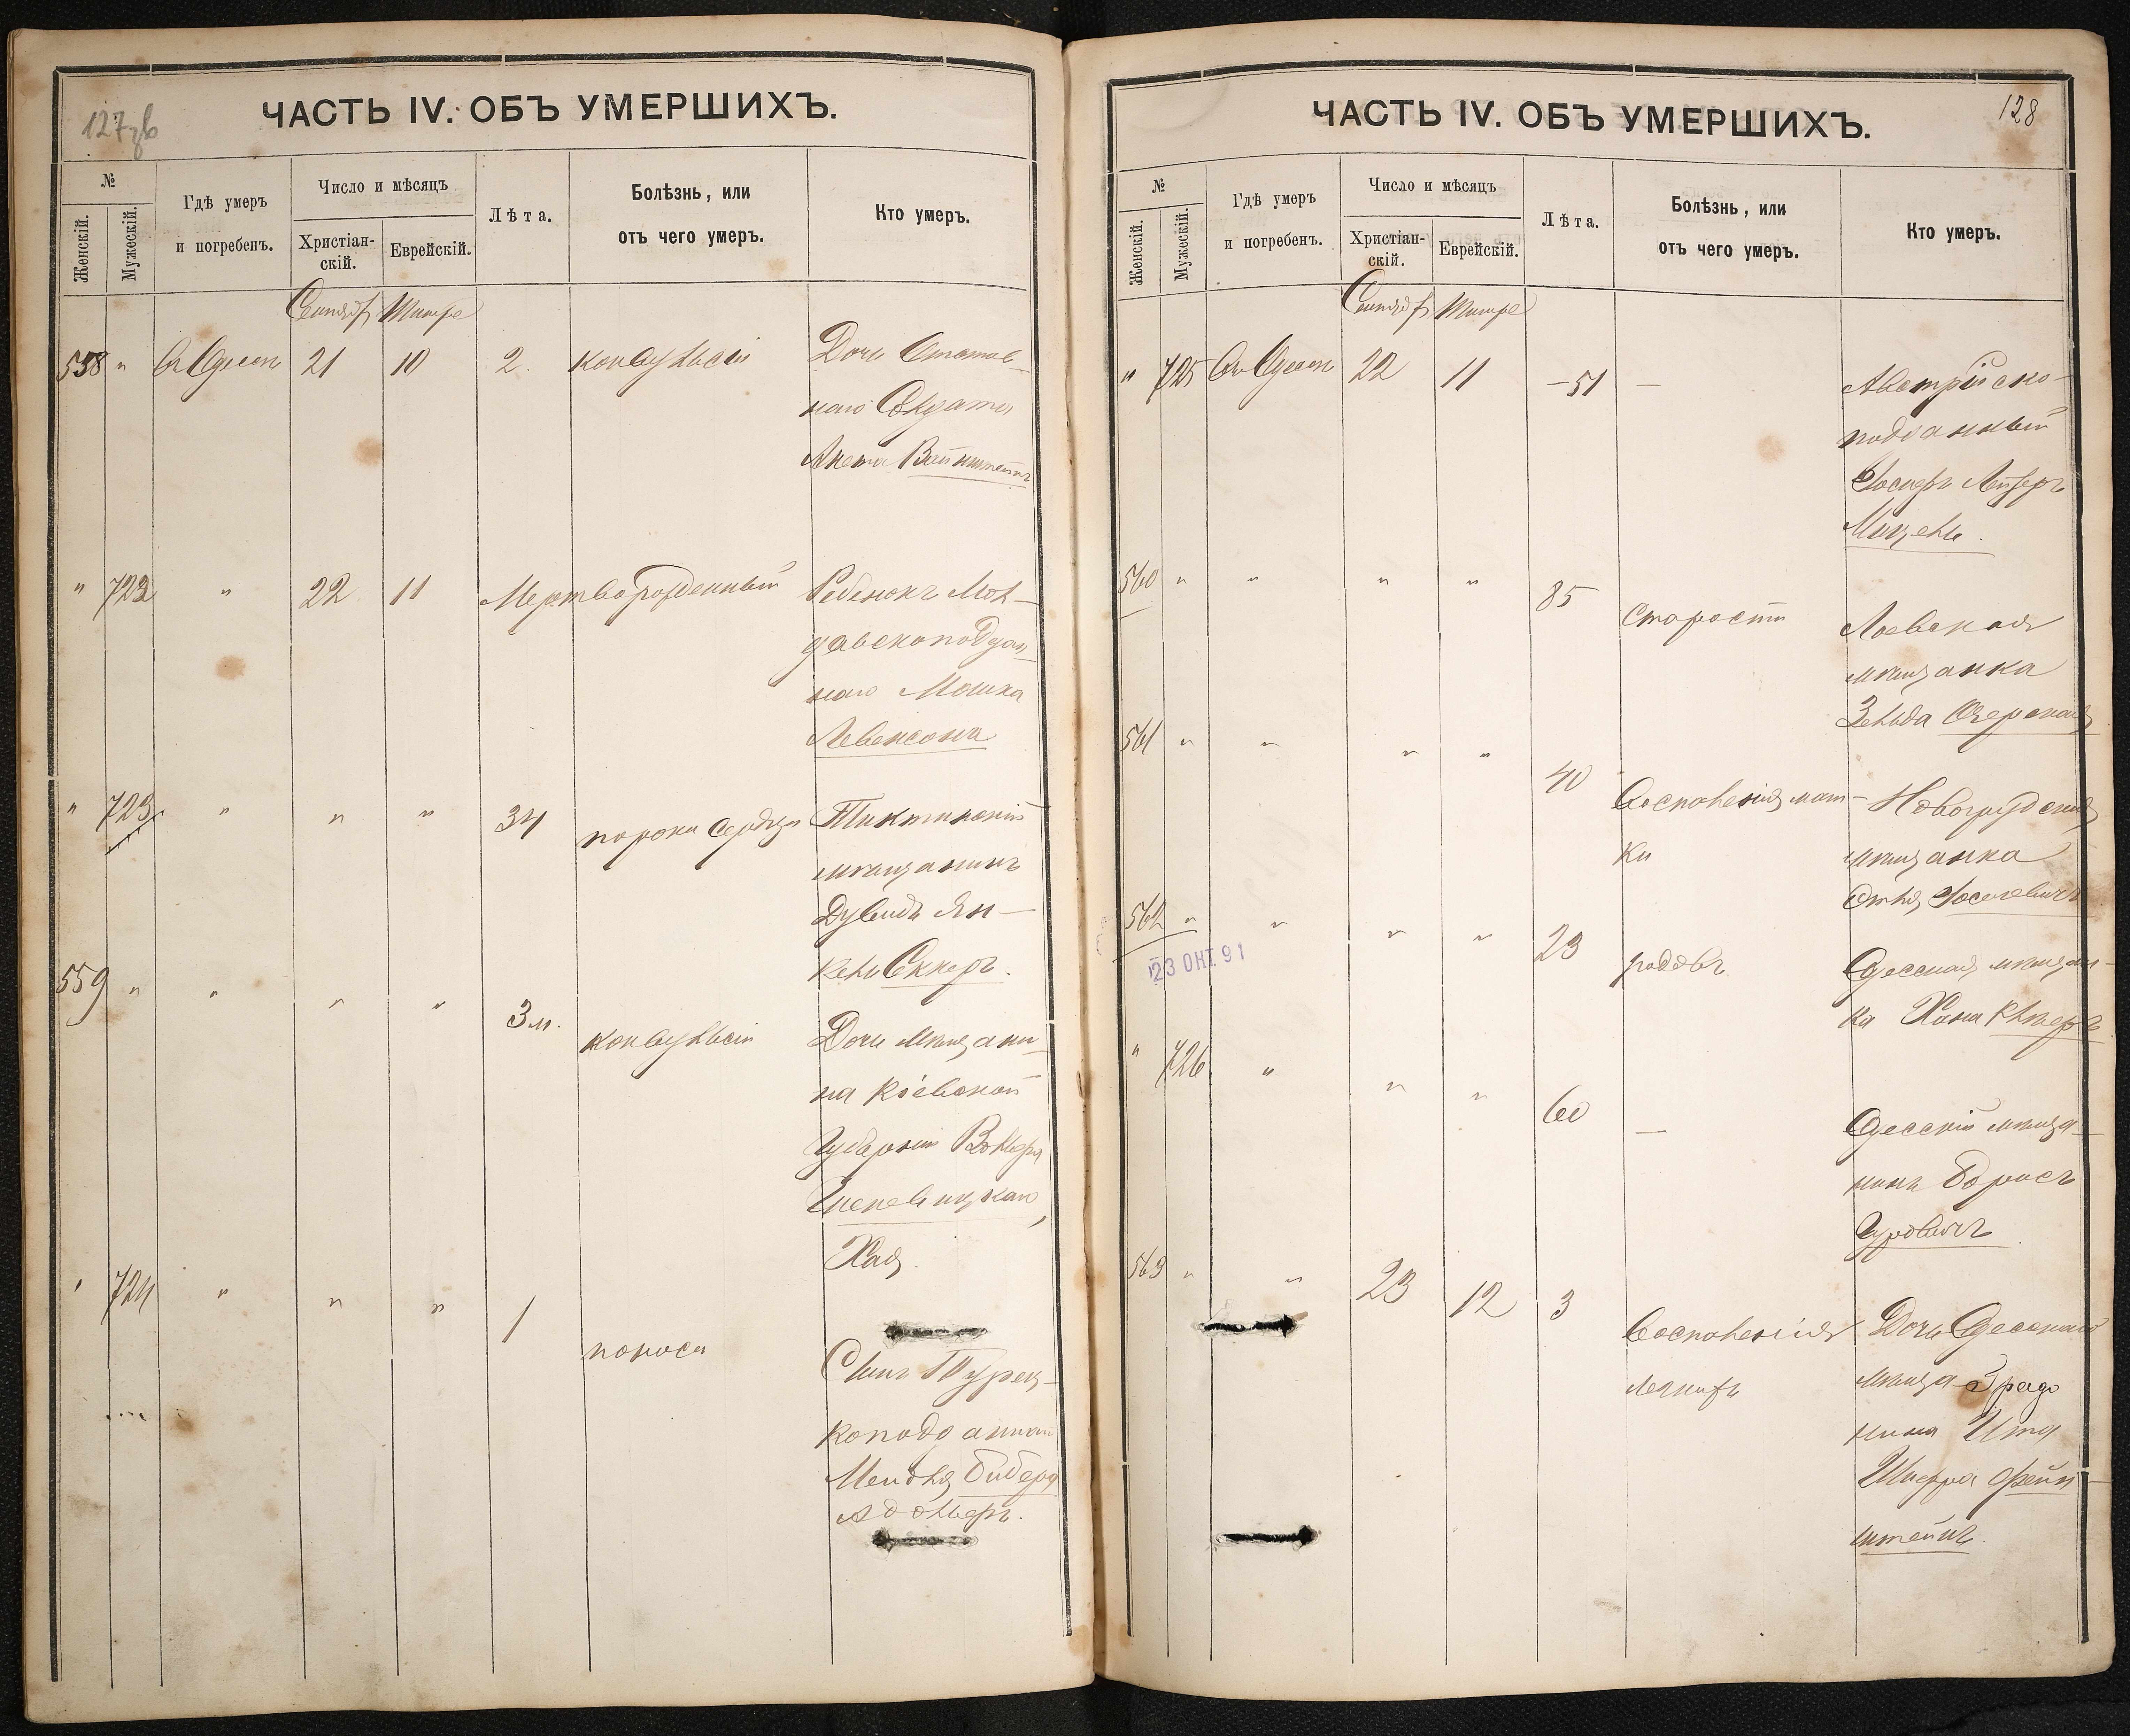 127зв
ЧАСТЬ IV. ОБЪ УМЕРШИХЪ.
№
Женскій.
Мужескій.
Гдѣ умеръ
и погребенъ.
Число и мѣсяцъ
Христіан-
скій.
Еврейскій.
Лѣта.
Болѣзнь, или
отъ чего умеръ.
Кто умеръ.
Сентябр Тишре
558 " Въ Одессѣ 21 10 2. конвульсіи Дочь Отстав-
наго Солдата
Вайнштейнъ
" 722 " 22 11 Мертворожденный Ребенокъ Мол-
давскоподдан-
наго Мошка
Левенсона
" 723 " " " 34 порока сердца Тиктинскій
мѣщанинъ
Дувидъ Ян-
кель Секкеръ.
559 " " " " 3 м. конвульсіи Дочь мѣщани-
на Кіевской
Губерніи Вольфа
Хая.
" 724 " " " 1 поноса Сынъ Турец-
коподданнаго
Мендля Бибера
Адольфъ.
128
ЧАСТЬ IV. ОБЪ УМЕРШИХЪ.
№
Женскій.
Мужескій.
Гдѣ умеръ
и погребенъ.
Число и мѣсяцъ
Христіан-
скій.
Еврейскій.
Лѣта.
Болѣзнь, или
отъ чего умеръ.
Кто умеръ.
Сентябр Тишре
" 725 Въ Одессѣ 22 11 -51 — Австрійско-
подданный
Іосифъ Лейзеръ
560 " " " " 85 старости Лоевская
мѣщанка
Зельда Озерская
561 " " " " 40 Воспаленія мат- Новогрудская
ки мѣщанка
Этля Іоселевичъ
562 " " " " 23 родовъ Одесская мѣщан-
ка Хана
23 ОКТ. 91
" 726 " " " 60 — Одесскій мѣща-
нинъ Борисъ
Гуровичъ
563 " " 23 12 3 Воспаленія Дочь Одесскаго
легкихъ мѣща-
нина Ита
Шифра Фейн-
штейнъ.